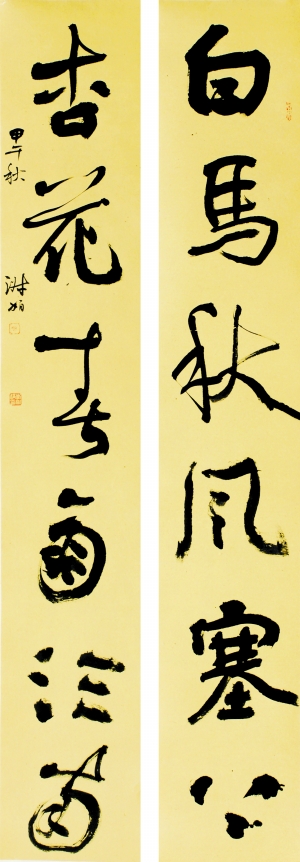 白馬秋风塞上
杏花春雨江南
甲午秋